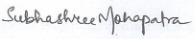 Subhashree Mohapatra